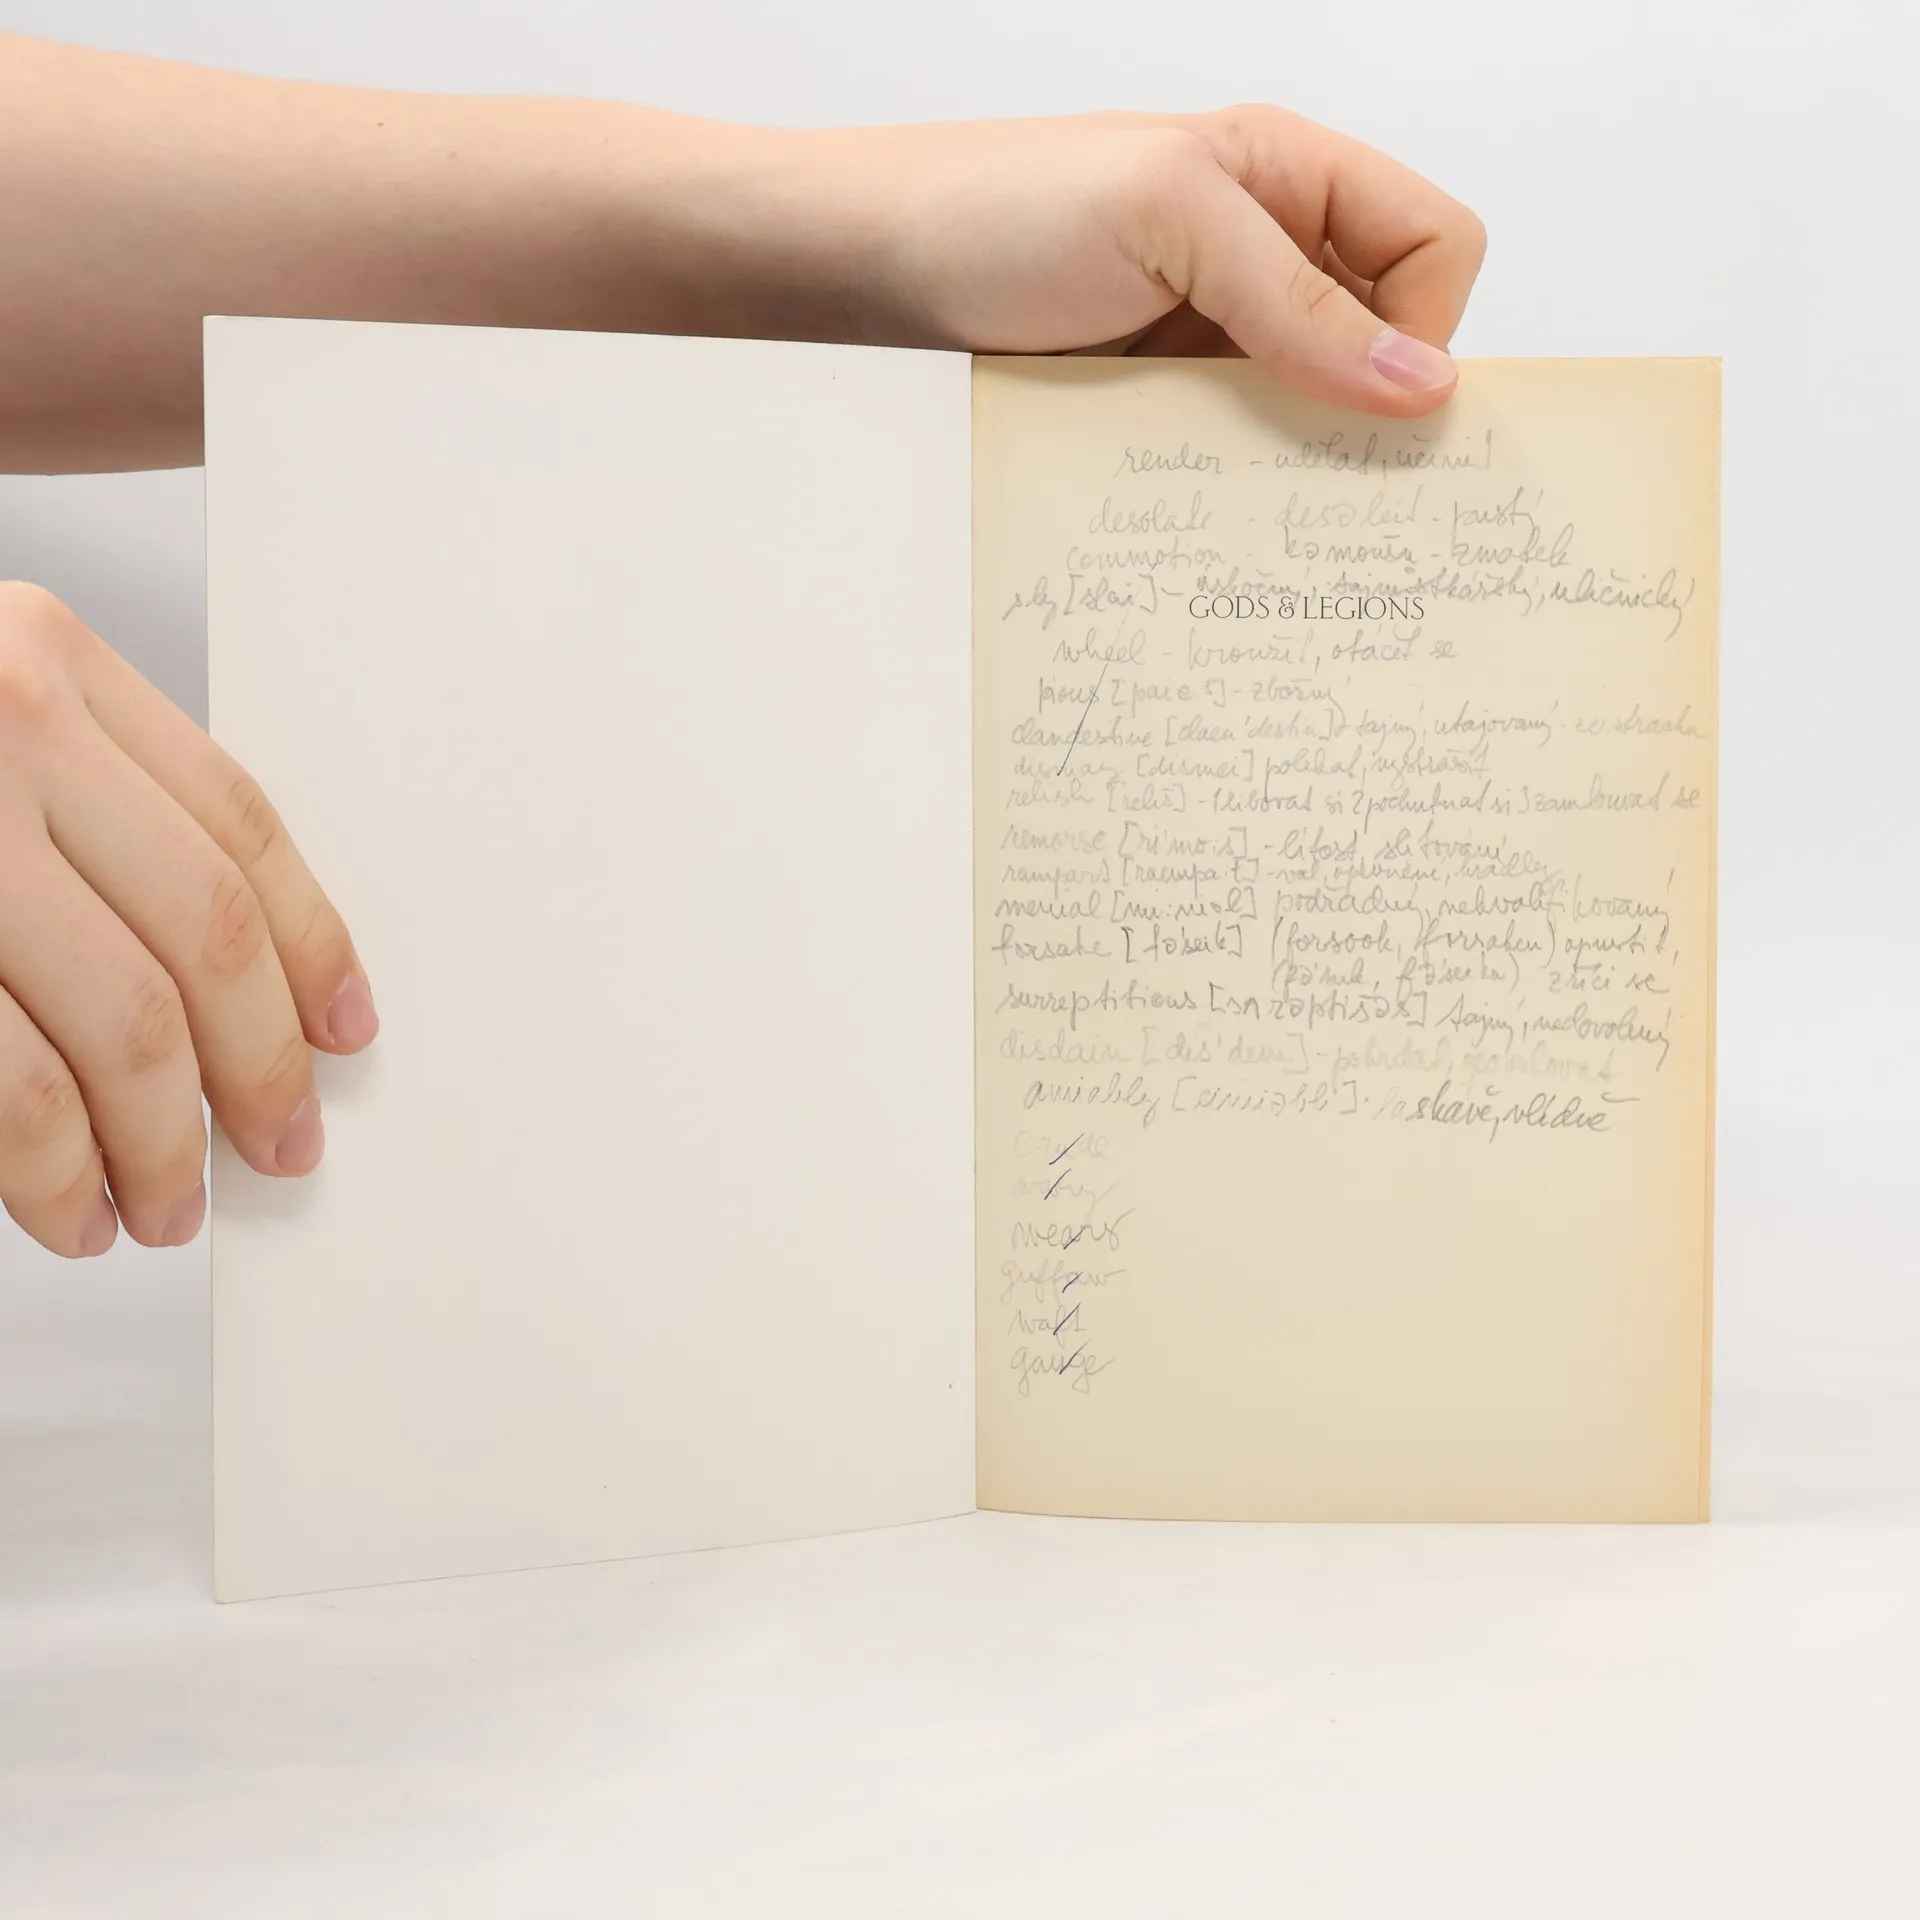 render - udělat, učinit
desolate - desəleit - pustý
commotion - kəmoušn - zmatek
sly [slai] - úskočný, tajnůstkářský, uličnický
GODS & LEGIONS
wheel - kroužit, otáčet se
pious [paiəs] - zbožný
clandestine [claen'destin] tajný, utajovaný - ze strachu
dismay [dismei] polekat, vystrašit
relish [reliš] - 1 libovat si 2 pochutnat si 3 zamlouvat se
remorse [ri'mo:s] - lítost, slitování
rampart [raempa:t] - val, opevnění, hradby
menial [mi:niəl] podřadný, nekvalifikovaný
forsake [fə'seik] (forsook, forsaken) opustit,
(fə'suk, fə'seikn) zříci se
surreptitious [sʌrəptišəs] tajný, nedovolený
disdain [dis'dein] - pohrdat,
amiably [eimiəbli] - laskavě, vlídně
crude
wavy
weary
guffaw
waft
gauge